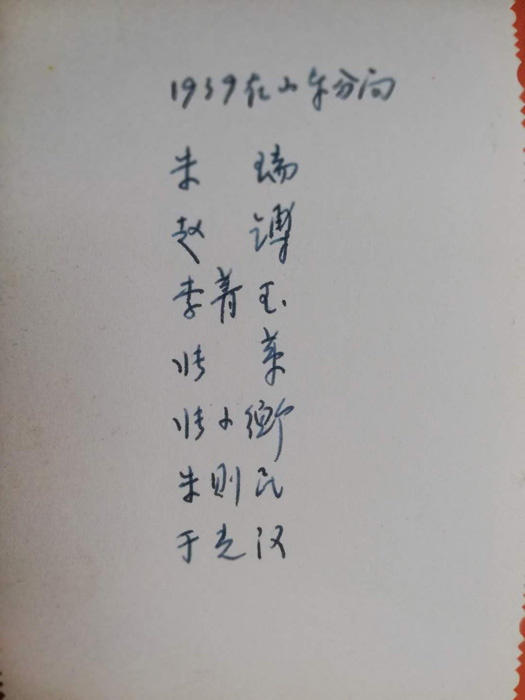 1939在山东分局
朱 瑞
赵 镈
李青玉
张 革
张小衡
朱则民
于克汉